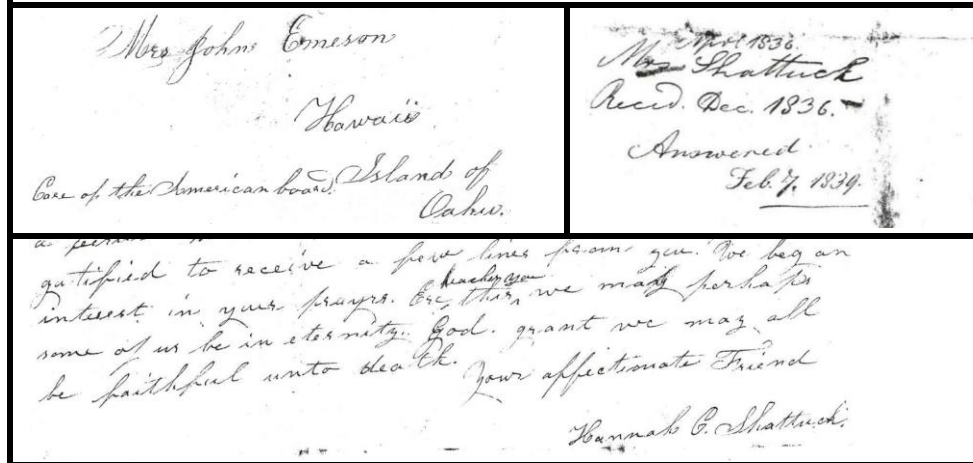 Mrs John Emeson
Hawaii
Care of the American board. Island of
Oahu.
April 1836.
Mrs Shattuck
Recd. Dec. 1836.
Answered
Feb. 7, 1839.
gratified to receive a few lines from you. We beg an
reaches you
interest in your prayrs. Ere this, we may perhaps
some of us be in eternity. God grant we may all
be faithful unto death.
Your affectionate Friend
Hannah C. Shattuck.